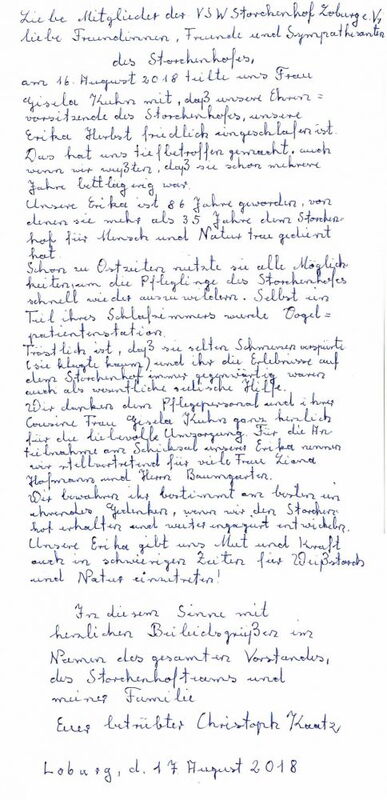 Liebe Mitglieder der VSW Storchenhof Loburg e.V.,
liebe Freundinnen, Freunde und Sympathisanten
des Storchenhofes,
am 16. August 2018 teilte uns Frau
Gisela Kuhn mit, daß unsere Ehren=
vorsitzende des Storchenhofes, unsere
Erika Herbst friedlich eingeschlafen ist.
Das hat uns tief betroffen gemacht, auch
wenn wir wußten, daß sie schon mehrere
Jahre bettlägerig war.
Unsere Erika ist 86 Jahre geworden, von
denen sie mehr als 35 Jahre dem Storchen-
hof für Mensch und Natur treu gedient
hat.
Schon zu Ostzeiten nutzte sie alle Möglich
keiten, um die Pfleglinge des Storchenhofes
schnell wieder auszuwildern. Selbst ein
Teil ihres Schlafzimmers wurde Vogel=
patientenstation.
Tröstlich ist, daß sie selten Schmerzen verspürte
(sie klagte kaum) und ihr die Erlebnisse auf
dem Storchenhof immer gegenwärtig waren
auch als wesentliche seelische Hilfe.
Wir danken dem Pflegepersonal und ihrer
Cousine Frau Gisela Kuhn ganz herzlich
für die liebevolle Umsorgung. Für die An
teilnahme am Schicksal unserer Erika nennen
wir stellvertretend für viele Frau
Hofmann und Herrn Baumgarten.
Wir bewahren ihr bestimmt am besten ein
ehrendes Gedenken, wenn wir den Storchen
hof erhalten und weiter engagiert entwickeln.
Unsere Erika gibt uns Mut und Kraft
auch in schwierigen Zeiten für Weißstorch
und Natur einzutreten!
In diesem Sinne mit
herzlichen Beileidsgrüßen im
Namen des gesamten Vorstandes,
des Storchenhofteams und
meiner Familie
Euer betrübter Christoph Kaatz
Loburg, d. 17 August 2018